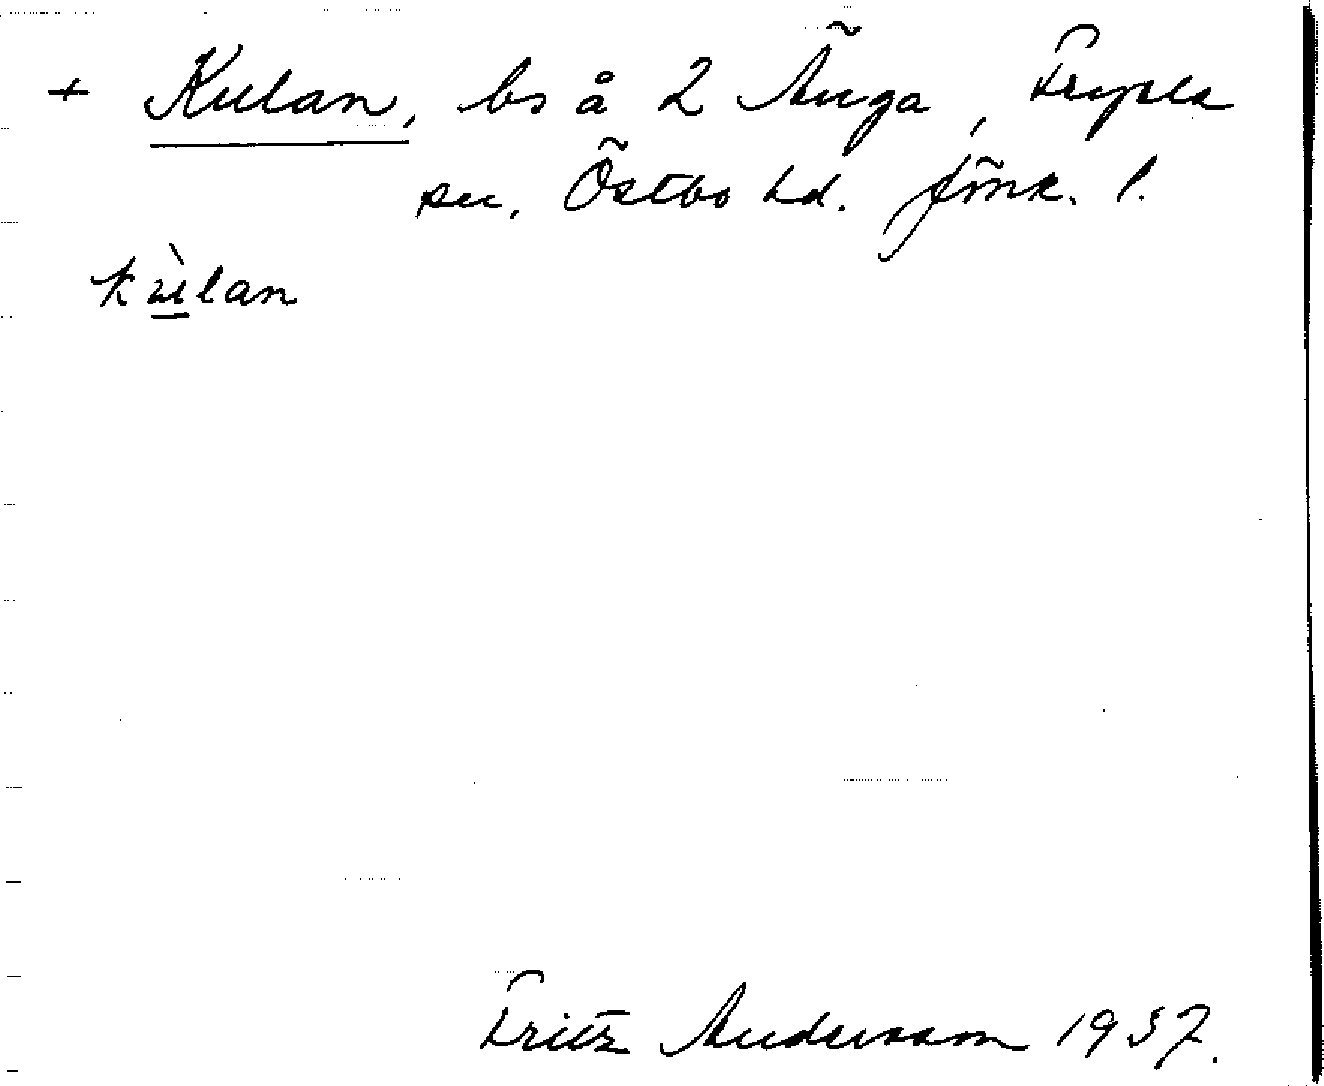 + Kulan, bs å 2 Änga, Fryele
sn, Östbo hd. Jönk. l.
kùlan
Fritz Andersson 1937.